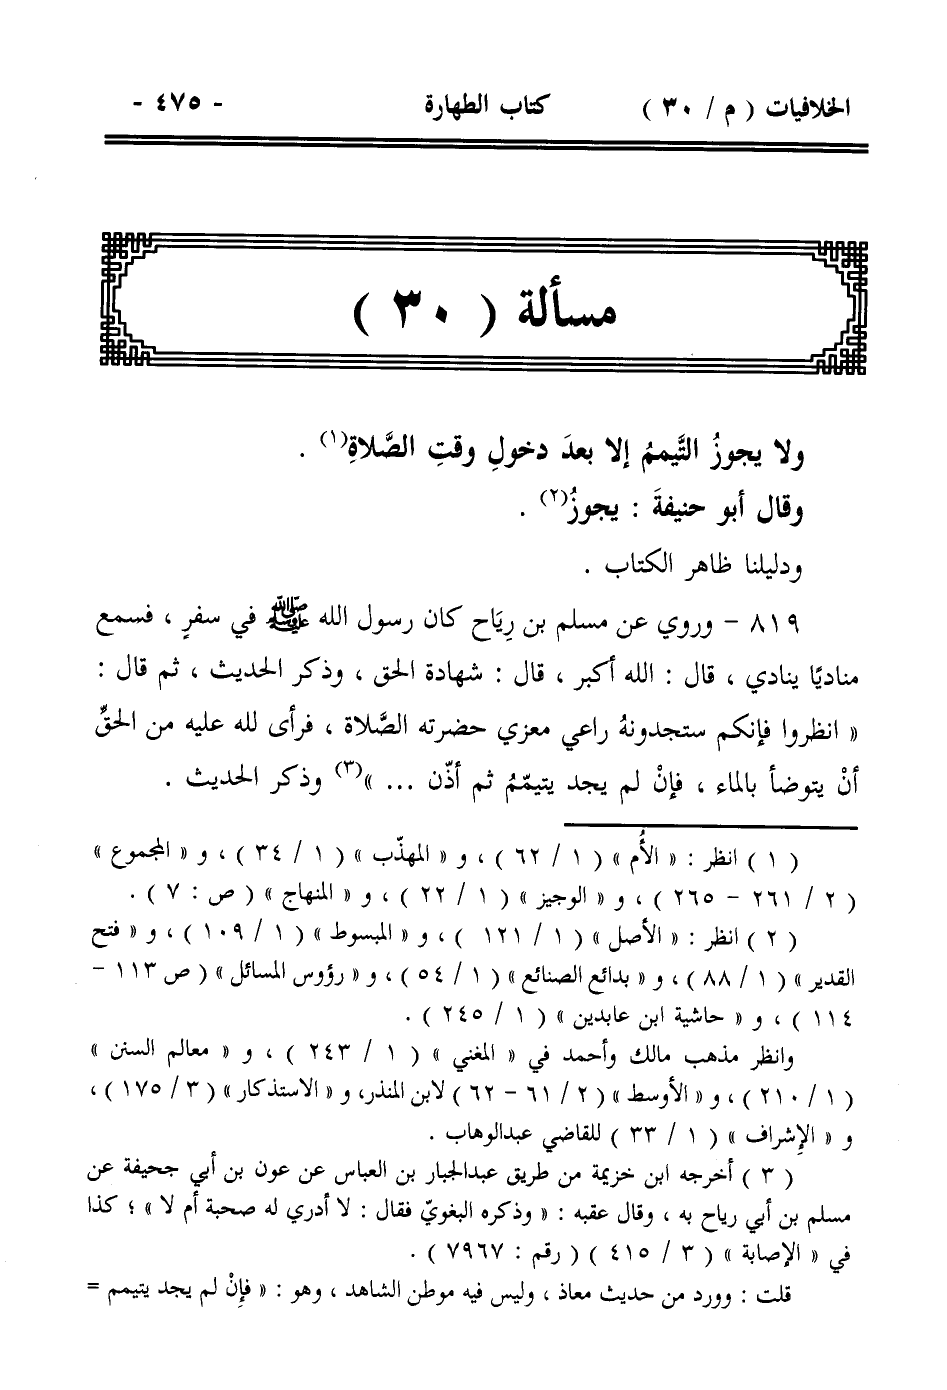 الخلافيات ( م / ٣٠ ) كتاب الطهارة - ٤٧٥ -
مسألة ( ٣٠ )
ولا يجوزُ التَّيممُ إلا بعدَ دخولِ وقتِ الصَّلاةِ(١) .
وقال أبو حنيفةَ : يجوزُ(٢) .
ودليلنا ظاهر الكتاب .
٨١٩ - وروي عن مسلم بن رِيَاح كان رسول الله ﷺ في سفرٍ ، فسمع
مناديًا ينادي ، قال : الله أكبر ، قال : شهادة الحق ، وذكر الحديث ، ثم قال :
« انظروا فإنكم ستجدونهُ راعي معزي حضرته الصَّلاة ، فرأى لله عليه من الحقِّ
أنْ يتوضأ بالماء ، فإنْ لم يجد يتيمّمُ ثم أذّن ... »(٣) وذكر الحديث .
( ١ ) انظر : « الأُم » ( ١ / ٦٢ ) ، و « المهذّب » ( ١ / ٣٤ ) ، و « المجموع »
( ٢ / ٢٦١ - ٢٦٥ ) ، و « الوجيز » ( ١ / ٢٢ ) ، و « المنهاج » ( ص : ٧ ) .
( ٢ ) انظر : « الأصل » ( ١ / ١٢١ ) ، و « المبسوط » ( ١ / ١٠٩ ) ، و « فتح
القدير » ( ١ / ٨٨ ) ، و « بدائع الصنائع » ( ١ / ٥٤ ) ، و « رؤوس المسائل » ( ص ١١٣ -
١١٤ ) ، و « حاشية ابن عابدين » ( ١ / ٢٤٥ ) .
وانظر مذهب مالك وأحمد في « المغني » ( ١ / ٢٤٣ ) ، و « معالم السنن »
( ١ / ٢١٠ ) ، و « الأوسط » ( ٢ / ٦١ - ٦٢ ) لابن المنذر، و « الاستذكار » ( ٣ / ١٧٥ ) ،
و « الإشراف » ( ١ / ٣٣ ) للقاضي عبدالوهاب .
( ٣ ) أخرجه ابن خزيمة من طريق عبدالجبار بن العباس عن عون بن أبي جحيفة عن
مسلم بن أبي رياح به ، وقال عقبه : « وذكره البغويّ فقال : لا أدري له صحبة أم لا » ؛ كذا
في « الإصابة » ( ٣ / ٤١٥ ) ( رقم : ٧٩٦٧ ) .
قلت : وورد من حديث معاذ ، وليس فيه موطن الشاهد ، وهو : « فإنْ لم يجد يتيمم =